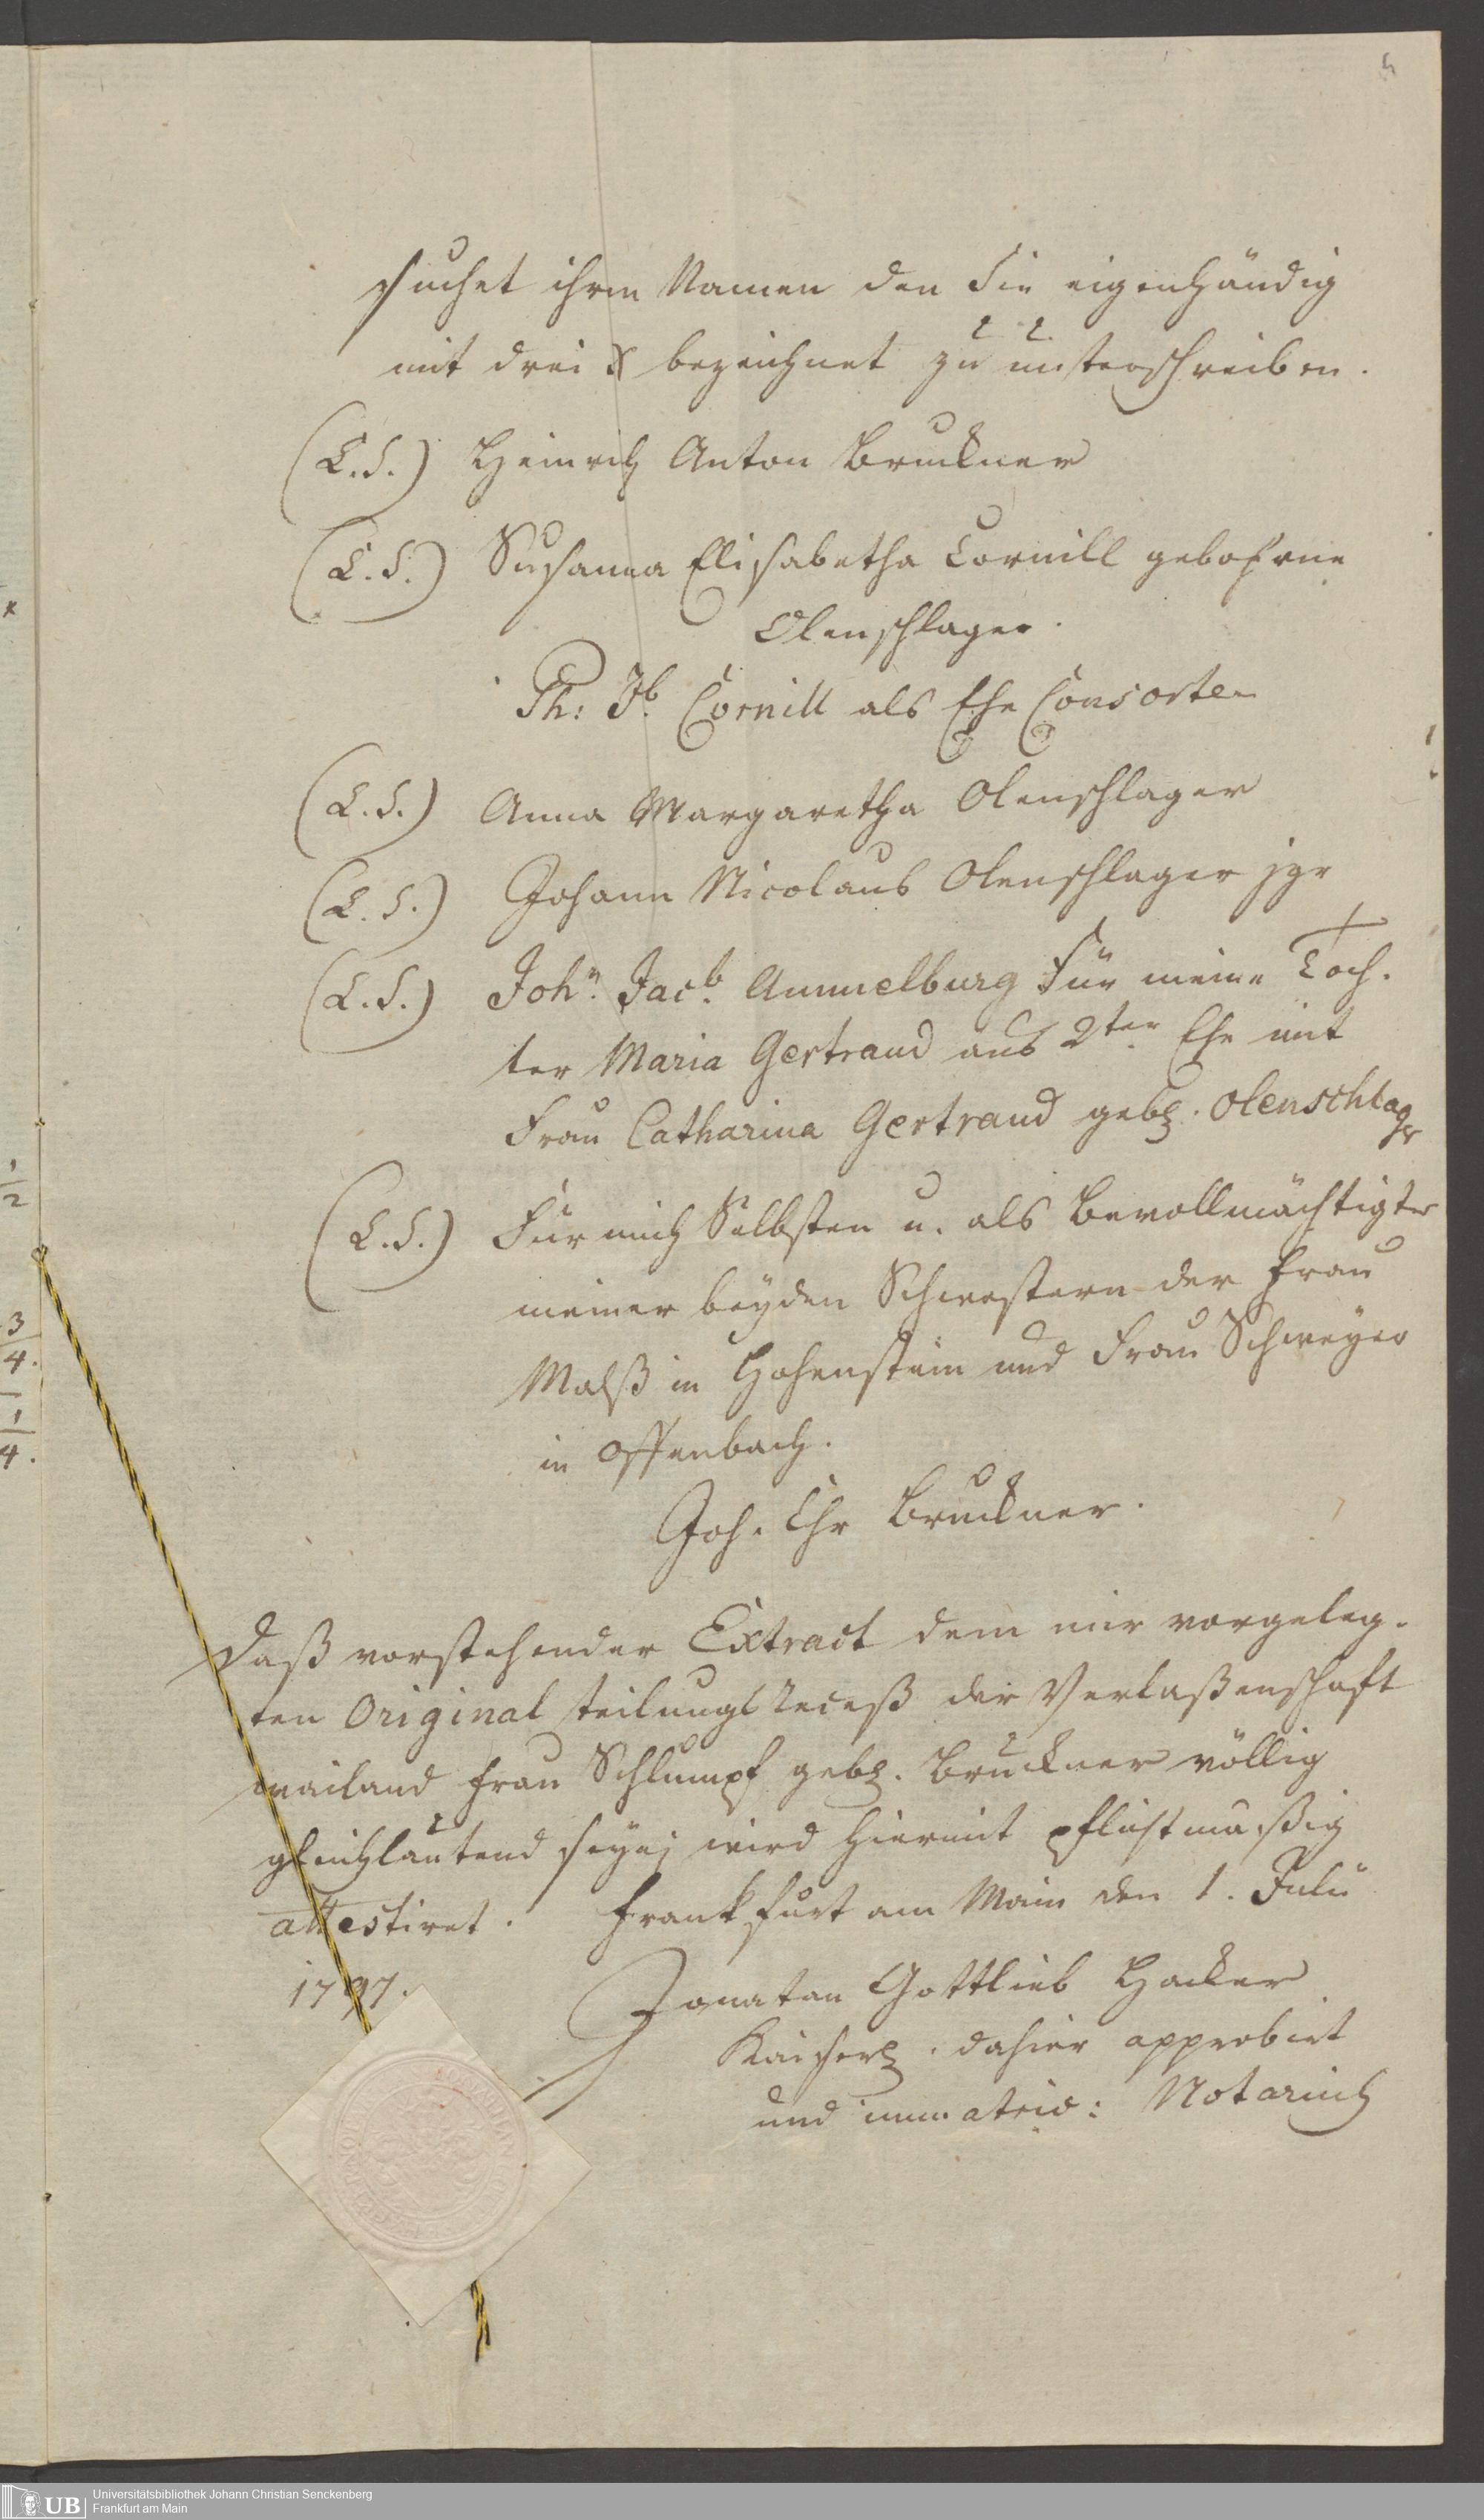 suchet ihren Namen den Sie eigenhändig
mit drei X bezeichnet zu unterschreiben.
(L.S.) Heinrich Anton Bruckner
(L.S.) Susanna Elisabetha Cornill gebohrne
Olenschlager.
Ph: Jb. Cornill als Ehe Consorten
(L.S.) Anna Margaretha Olenschlager
(L.S.) Johann Nicolaus Olenschlager jgr
(L.S.) John. Jacb. Ammelburg für meine Toch-
ter Maria Gertraud aus 2ter Ehe mit
Frau Catharina Gertraud gebl. Olenschlagr
(L.S.) Für mich Selbsten u. als Bevollmächtigter
meiner beyden Schwestern der Frau
Malß in Hohenstein und Frau Schweyer
in Offenbach.
Joh. Chr Bruckner.
Daß vorstehender Extract dem mir vorgeleg-
ten Original teilungs Receß der Verlaßenschaft
weiland Frau Schlumpf gebl. Bruckner völlig
gleichlautend seye; wird hiermit pflichtmaßig
attestiret. Frankfurt am Main den 1. Julii
1797.
Jonatan Gottlieb Hacker
Kaiserl. dahier approbirt
und immatric: Notarius
UB
Universitätsbibliothek Johann Christian Senckenberg
Frankfurt am Main